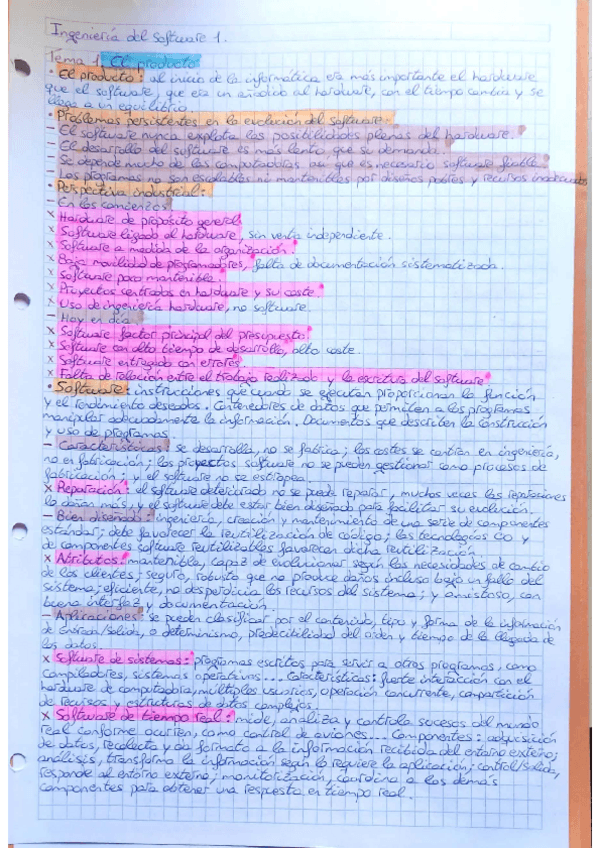 Ingeniería del Software 1.
Tema 1. El producto
• El producto: al inicio de la informática era más importante el hardware
que el software, que era un añadido al hardware, con el tiempo cambia y se
llega a un equilibrio.
• Problemas persistentes en la evolución del software:
- El software nunca explota las posibilidades plenas del hardware.
- El desarrollo del software es más lento que se demanda.
- Se depende mucho de las computadoras así que es necesario software fiable.
- Los programas no son escalables ni mantenibles por diseños pobres y recursos inadecuados
• Perspectiva industrial:
- En los comienzos:
x Hardware de propósito general
x Software ligado al hardware, sin venta independiente.
x Software a medida de la organización.
x Baja movilidad de programadores, falta de documentación sistematizada.
x Software poco mantenible.
x Proyectos centrados en hardware y su coste.
x Uso de ingeniería hardware, no software.
- Hoy en día:
x Software factor principal del presupuesto.
x Software con alto tiempo de desarrollo, alto coste.
x Software entregado con errores.
x Falta de relación entre el trabajo realizado y la escritura del software
• Software: instrucciones que cuando se ejecutan proporcionan la función
y el rendimiento deseados. Contenedores de datos que permiten a los programas
manipular adecuadamente la información. Documentos que describen la construcción
y uso de programas.
- Características: se desarrolla, no se fabrica; los costes se centran en ingeniería,
no en fabricación; los proyectos software no se pueden gestionar como procesos de
fabricación; y el software no se estropea.
x Reparación: el software deteriorado no se puede reparar, muchas veces las reparaciones
lo dañan más y el software debe estar bien diseñado para facilitar su evolución.
- Bien diseñado: ingeniería, creación y mantenimiento de una serie de componentes
estándar; debe favorecer la reutilización de código; las tecnologías OO y
de componentes software reutilizables favorecen dicha reutilización.
x Atributos: mantenible, capaz de evolucionar según las necesidades de cambio
de los clientes; seguro, robusto que no produce daños incluso bajo un fallo del
sistema; eficiente, no desperdicia los recursos del sistema; y amistoso, con
buena interfaz y documentación.
- Aplicaciones: se pueden clasificar por el contenido, tipo y forma de la información
de Entrada/Salida, o determinismo, predecibilidad del orden y tiempo de la llegada de
los datos.
x Software de sistemas: programas escritos para servir a otros programas, como
compiladores, sistemas operativos... Características: fuerte interacción con el
hardware de computadora, múltiples usuarios, operación concurrente, compartición
de recursos y estructuras de datos complejos.
x Software de tiempo real: mide, analiza y controla sucesos del mundo
real conforme ocurren, como control de aviones... Componentes: adquisición
de datos, recolecta y da formato a la información recibida del entorno externo;
análisis, transforma la información según lo requiere la aplicación; control/salida,
responde al entorno externo; monitorización, coordina a los demás
componentes para obtener una respuesta en tiempo real.